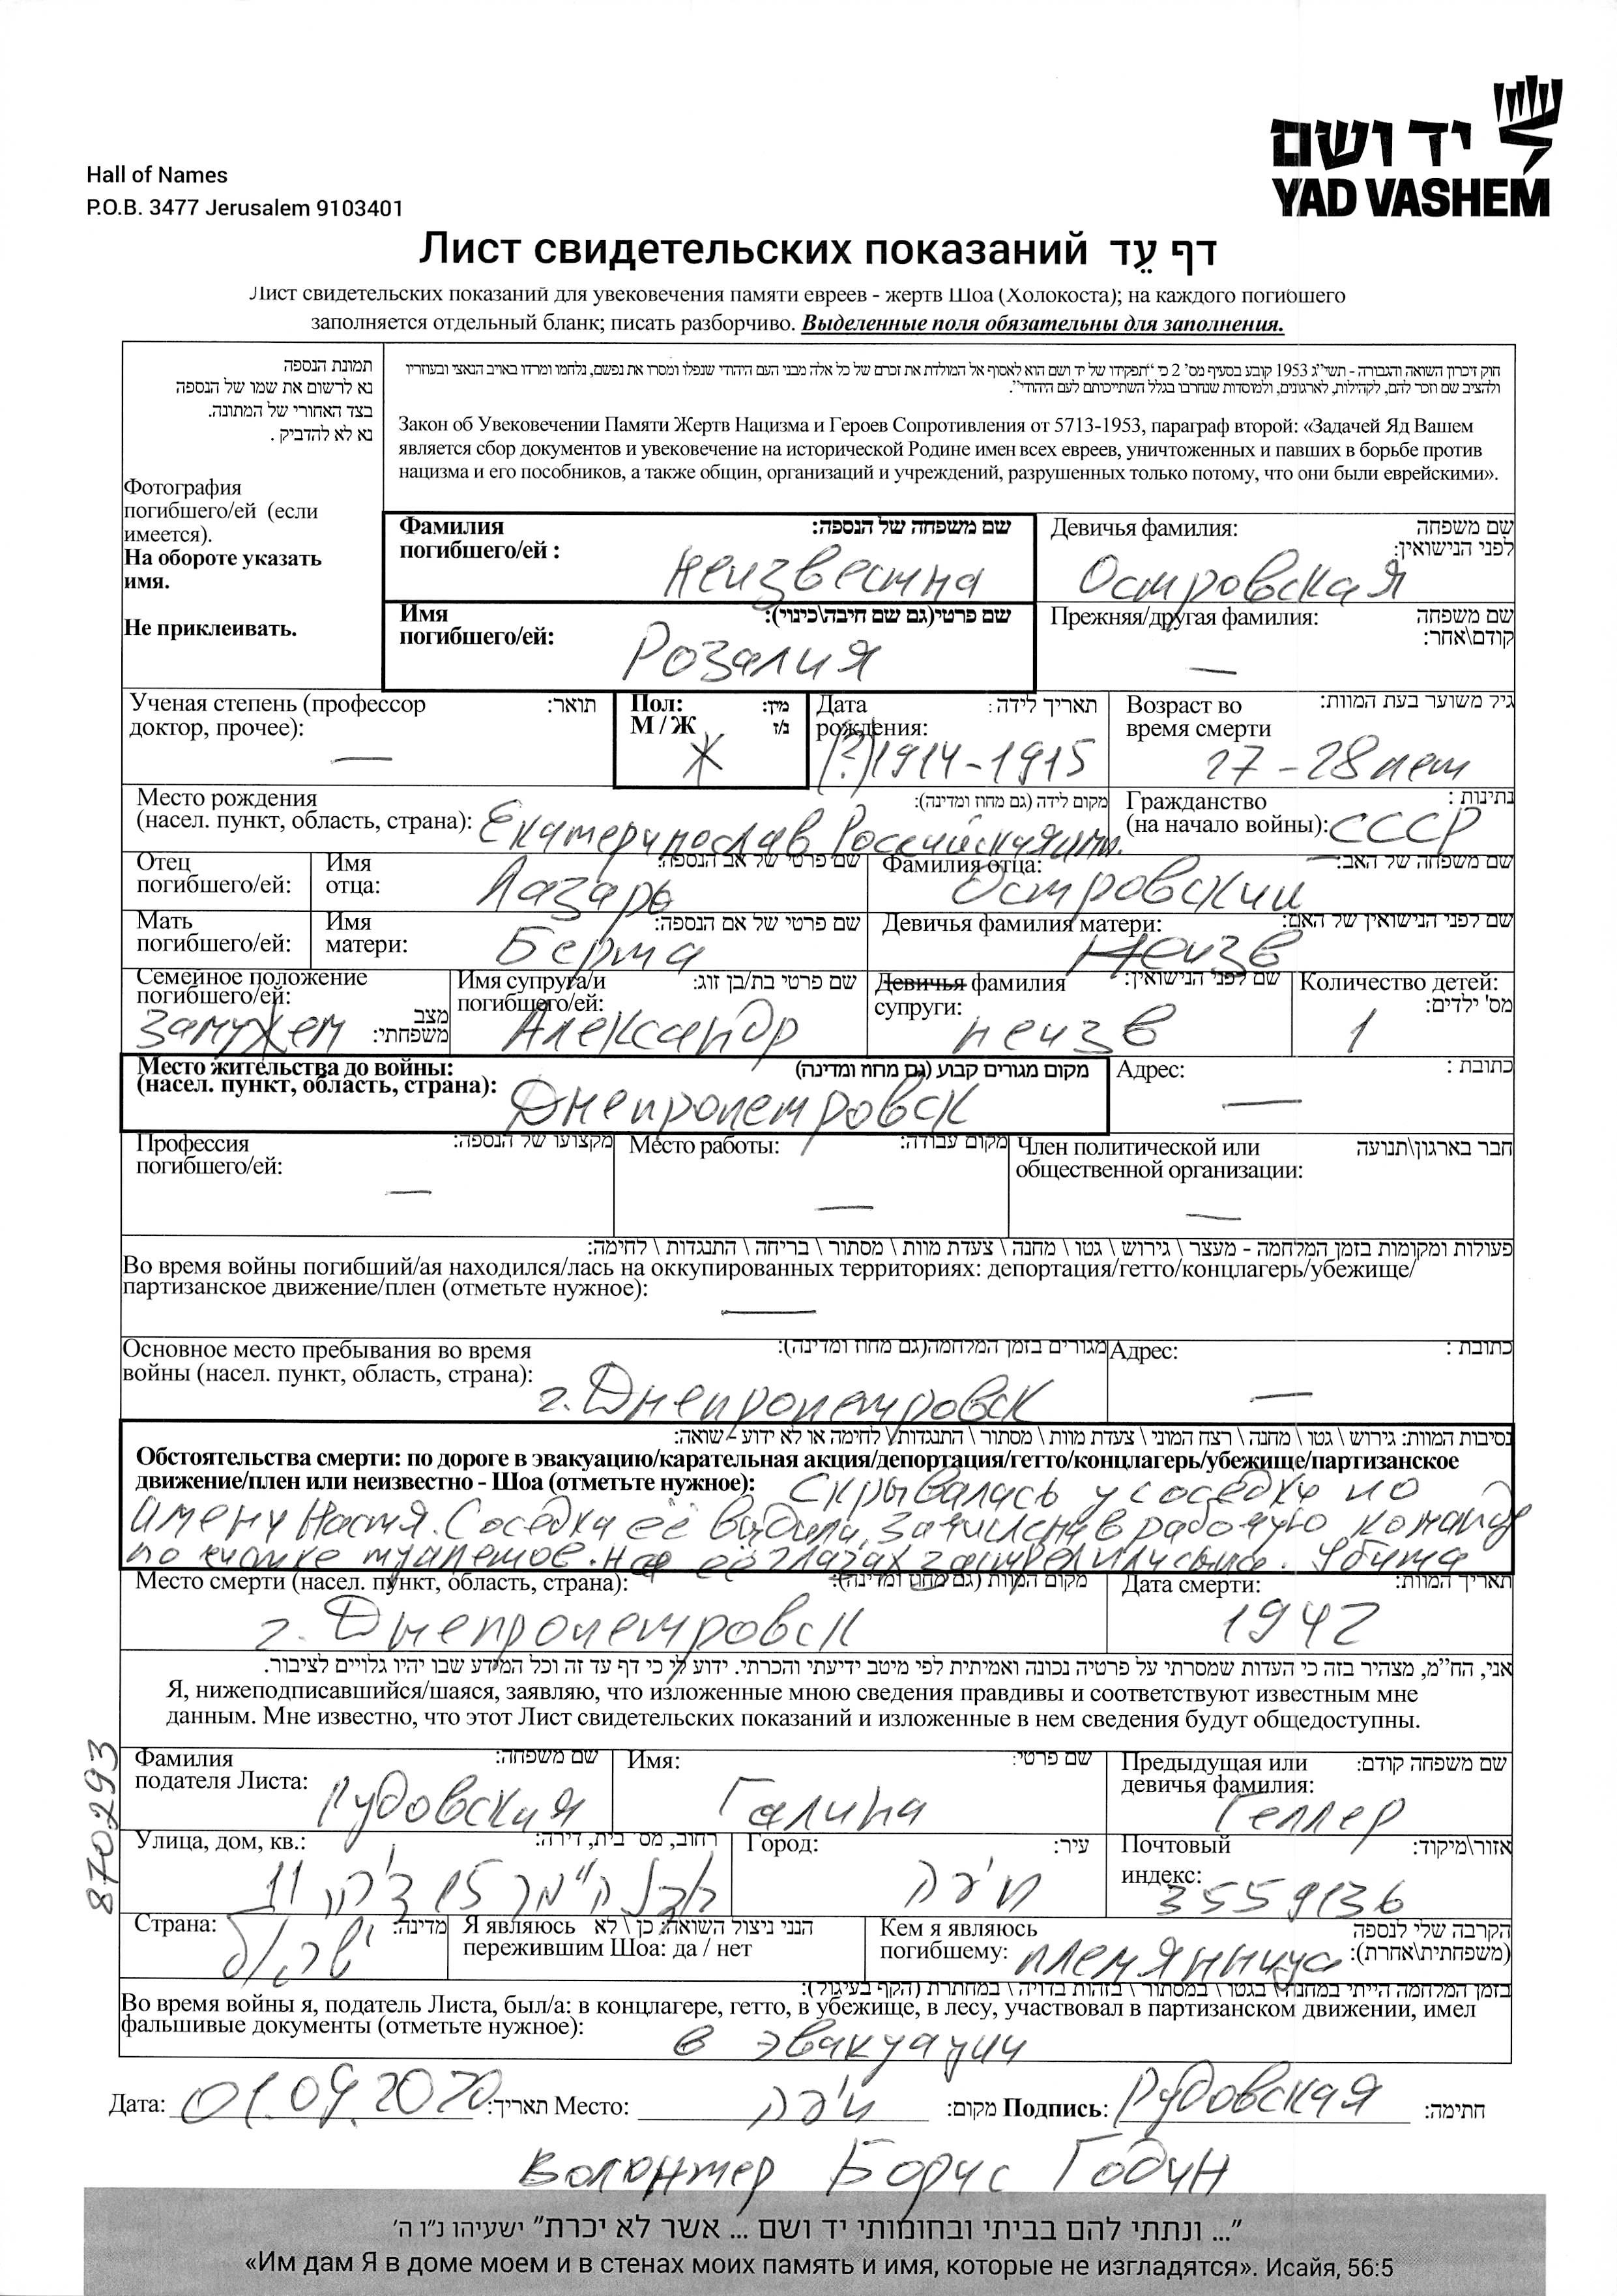 יד ושם
YAD VASHEM
Hall of Names
P.O.B. 3477 Jerusalem 9103401
Лист свидетельских показаний דף עֵד
Лист свидетельских показаний для увековечения памяти евреев - жертв Шоа (Холокоста); на каждого погибшего
заполняется отдельный бланк; писать разборчиво. Выделенные поля обязательны для заполнения.
תמונת הנספה
נא לרשום את שמו של הנספה
בצד האחורי של התמונה.
נא לא להדביק .
Фотография
погибшего/ей (если
имеется).
На обороте указать
имя.
Не приклеивать.
חוק זיכרון השואה והגבורה - תשי"ג 1953 קובע בסעיף מס' 2 כי "תפקידו של יד ושם הוא לאסוף אל המולדת את זכרם של כל אלה מבני העם היהודי שנפלו ומסרו את נפשם, נלחמו ומרדו באויב הנאצי ובעוזריו
ולהציב שם וזכר להם, לקהילות, לארגונים, ולמוסדות שנחרבו בגלל השתייכותם לעם היהודי".
Закон об Увековечении Памяти Жертв Нацизма и Героев Сопротивления от 5713-1953, параграф второй: «Задачей Яд Вашем
является сбор документов и увековечение на исторической Родине имен всех евреев, уничтоженных и павших в борьбе против
нацизма и его пособников, а также общин, организаций и учреждений, разрушенных только потому, что они были еврейскими».
Фамилия שם משפחה של הנספה:
погибшего/ей :
Неизвестна
Девичья фамилия: שם משפחה
לפני הנישואין:
Островская
Имя שם פרטי(גם שם חיבה\כינוי):
погибшего/ей:
Розалия
Прежняя/другая фамилия: שם משפחה
קודם\אחר:
—
Ученая степень (профессор תואר:
доктор, прочее):
—
Пол: מין:
М / Ж ז/נ
Ж
Дата תאריך לידה :
рождения:
(?)1914-1915
Возраст во גיל משוער בעת המוות:
время смерти
27 - 28 лет
Место рождения מקום לידה (גם מחוז ומדינה):
(насел. пункт, область, страна):
Екатеринослав Российская имп.
Гражданство נתינות :
(на начало войны): СССР
Отец
погибшего/ей:
Имя שם פרטי של אב הנספה:
отца: Лазарь
Фамилия отца: שם משפחה של האב:
Островский
Мать
погибшего/ей:
Имя שם פרטי של אם הנספה:
матери: Берта
Девичья фамилия матери: שם לפני הנישואין של האם:
Неизв
Семейное положение
погибшего/ей: מצב
משפחתי:
Замужем
Имя супруга/и שם פרטי בת/בן זוג:
погибшего/ей:
Александр
Девичья фамилия שם לפני הנישואין:
супруги:
неизв
Количество детей:
מס' ילדים:
1
Место жительства до войны: מקום מגורים קבוע (גם מחוז ומדינה)
(насел. пункт, область, страна):
Днепропетровск
Адрес: כתובת :
—
Профессия מקצועו של הנספה:
погибшего/ей:
—
Место работы: מקום עבודה:
—
Член политической или חבר בארגון\תנועה
общественной организации:
—
פעולות ומקומות בזמן המלחמה - מעצר \ גירוש \ גטו \ מחנה \ צעדת מוות \ מסתור \ בריחה \ התנגדות \ לחימה:
Во время войны погибший/ая находился/лась на оккупированных территориях: депортация/гетто/концлагерь/убежище/
партизанское движение/плен (отметьте нужное):
—
Основное место пребывания во время מגורים בזמן המלחמה(גם מחוז ומדינה):
войны (насел. пункт, область, страна):
г. Днепропетровск
Адрес: כתובת :
—
נסיבות המוות: גירוש \ גטו \ מחנה \ רצח המוני \ צעדת מוות \ מסתור \ התנגדות\ לחימה או לא ידוע - שואה:
Обстоятельства смерти: по дороге в эвакуацию/карательная акция/депортация/гетто/концлагерь/убежище/партизанское
движение/плен или неизвестно - Шоа (отметьте нужное): Скрывалась у соседки по
имену Настя. Соседка её выдала, зачислена в рабочую команду
по чистке туалетов. На её глазах застрелили сына. Убита
Место смерти (насел. пункт, область, страна): מקום המוות (גם מחוז ומדינה):
г. Днепропетровск
Дата смерти: תאריך המוות:
1942
אני, הח"מ, מצהיר בזה כי העדות שמסרתי על פרטיה נכונה ואמיתית לפי מיטב ידיעתי והכרתי. ידוע לי כי דף עד זה וכל המידע שבו יהיו גלויים לציבור.
Я, нижеподписавшийся/шаяся, заявляю, что изложенные мною сведения правдивы и соответствуют известным мне
данным. Мне известно, что этот Лист свидетельских показаний и изложенные в нем сведения будут общедоступны.
870293
Фамилия שם משפחה:
подателя Листа:
Рудовская
Имя: שם פרטי:
Галина
Предыдущая или שם משפחה קודם:
девичья фамилия:
Геллер
Улица, дом, кв.: רחוב, מס' בית, דירה:
15 11
Город: עיר:
חיפה
Почтовый אזור\מיקוד:
индекс:
3559136
Страна: מדינה:
ישראל
Я являюсь הנני ניצול השואה: כן \ לא
пережившим Шоа: да / нет
Кем я являюсь הקרבה שלי לנספה
погибшему: (משפחתית\אחרת):
племянница
בזמן המלחמה הייתי במחנה \ בגטו \ במסתור \ בזהות בדויה \ במחתרת (הקף בעיגול):
Во время войны я, податель Листа, был/а: в концлагере, гетто, в убежище, в лесу, участвовал в партизанском движении, имел
фальшивые документы (отметьте нужное):
в эвакуации
Дата: 01.09.2020 תאריך: Место: חיפה מקום: Подпись: Рудовская חתימה:
Волонтер Борис Годин
"... ונתתי להם בביתי ובחומותי יד ושם ... אשר לא יכרת" ישעיהו נ"ו ה'
«Им дам Я в доме моем и в стенах моих память и имя, которые не изгладятся». Исайя, 56:5